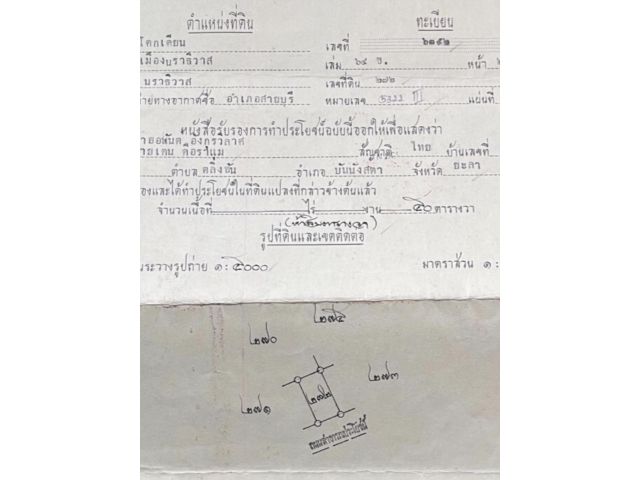 ตำแหน่งที่ดิน
ทะเบียน
โคกเคียน
เลขที่ ๖๑๕๒
เมืองนราธิวาส
เล่ม ๖๔ ข. หน้า
นราธิวาส
เลขที่ดิน ๒๗๒
ถ่ายทางอากาศชื่อ อำเภอสายบุรี
หมายเลข 5322 III แผ่นที่
หนังสือรับรองการทำประโยชน์ฉบับนี้ออกให้เพื่อแสดงว่า
สัญชาติ ไทย บ้านเลขที่
ตำบล ตลิ่งชัน อำเภอ บันนังสตา จังหวัด ยะลา
องและได้ทำประโยชน์ในที่ดินแปลงที่กล่าวข้างต้นแล้ว
จำนวนเนื้อที่ ไร่ งาน ๕๐ ตารางวา
(ห้าสิบตารางวา)
รูปที่ดินและเขตติดต่อ
ในระวางรูปถ่าย ๑ : ๕๐๐๐
มาตราส่วน ๑ :
๒๗๕
๒๗๐
๒๗๓
๒๗๒
๒๗๑